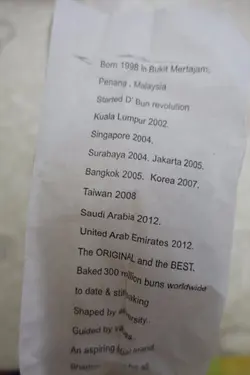 Born 1998 in Bukit Mertajam,
Penang , Malaysia
Started D' Bun revolution
Kuala Lumpur 2002.
Singapore 2004.
Surabaya 2004. Jakarta 2005.
Bangkok 2005. Korea 2007.
Taiwan 2008
Saudi Arabia 2012.
United Arab Emirates 2012.
The ORIGINAL and the BEST.
Baked 300 million buns worldwide
to date & still baking
Shaped by
Guided by
An aspiring
all